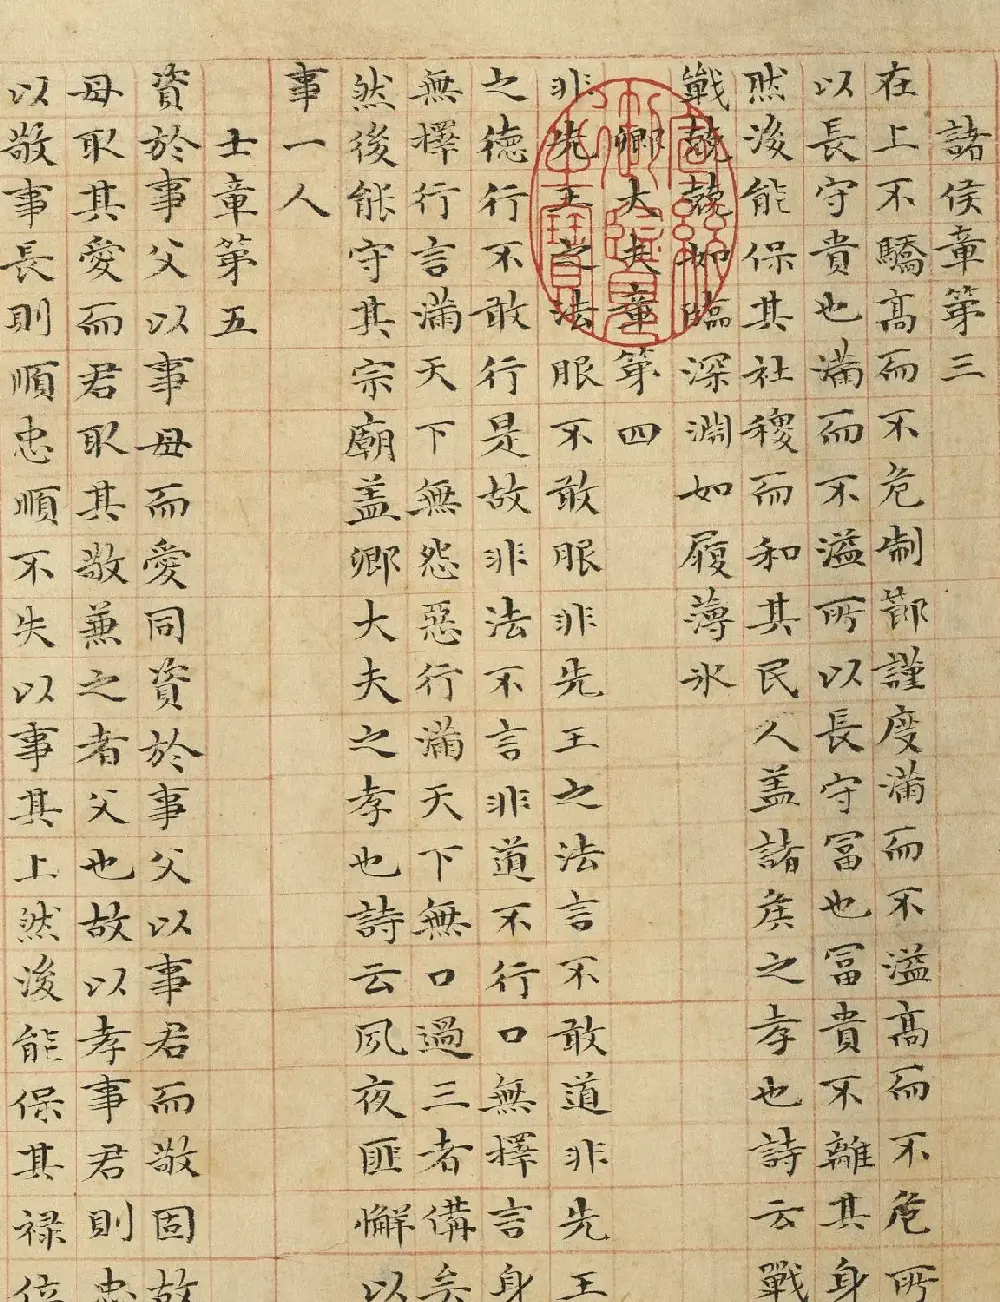 諸侯章第三
在上不驕高而不危制節謹度滿而不溢高而不危所
以長守貴也滿而不溢所以長守冨也冨貴不離其身
然後能保其社稷而和其民人盖諸侯之孝也詩云戰
戰兢兢如臨深淵如履薄氷
卿大夫章第四
非先王之法服不敢服非先王之法言不敢道非先王
之德行不敢行是故非法不言非道不行口無擇言身
無擇行言滿天下無口過行滿天下無怨惡三者備矣
然後能守其宗廟盖卿大夫之孝也詩云夙夜匪懈以
事一人
士章第五
資於事父以事母而愛同資於事父以事君而敬同故
母取其愛而君取其敬兼之者父也故以孝事君則忠
以敬事長則順忠順不失以事其上然後能保其祿位